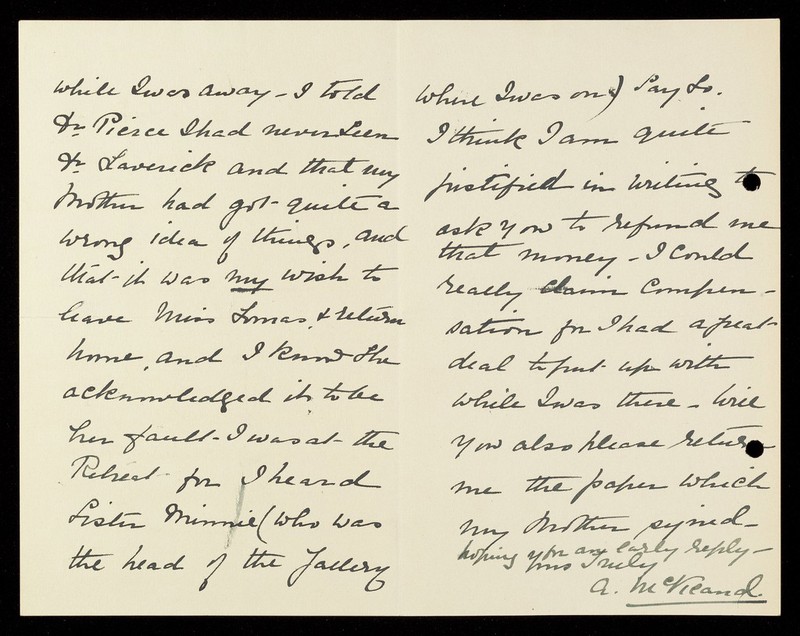 while I was away - I told
Dr Pierce I had never seen
Dr Laverick and that my
Mother had got quite a
wrong idea of things, and
that it was my wish to
leave Miss Lomas, & return
home, and I know she
acknowledged it to be
her fault - I was at the
Retreat for I heard
Sister Minnie (who was
the head of the Gallery
where I was on) say so.
I think I am quite
justified in writing to
ask you to refund me
that money - I could
really claim compen-
sation for I had a great
deal to put up with
while I was there - Will
you also please return
me the paper which
my Mother signed -
hoping for an early reply -
yrs Truly
A. McVicand